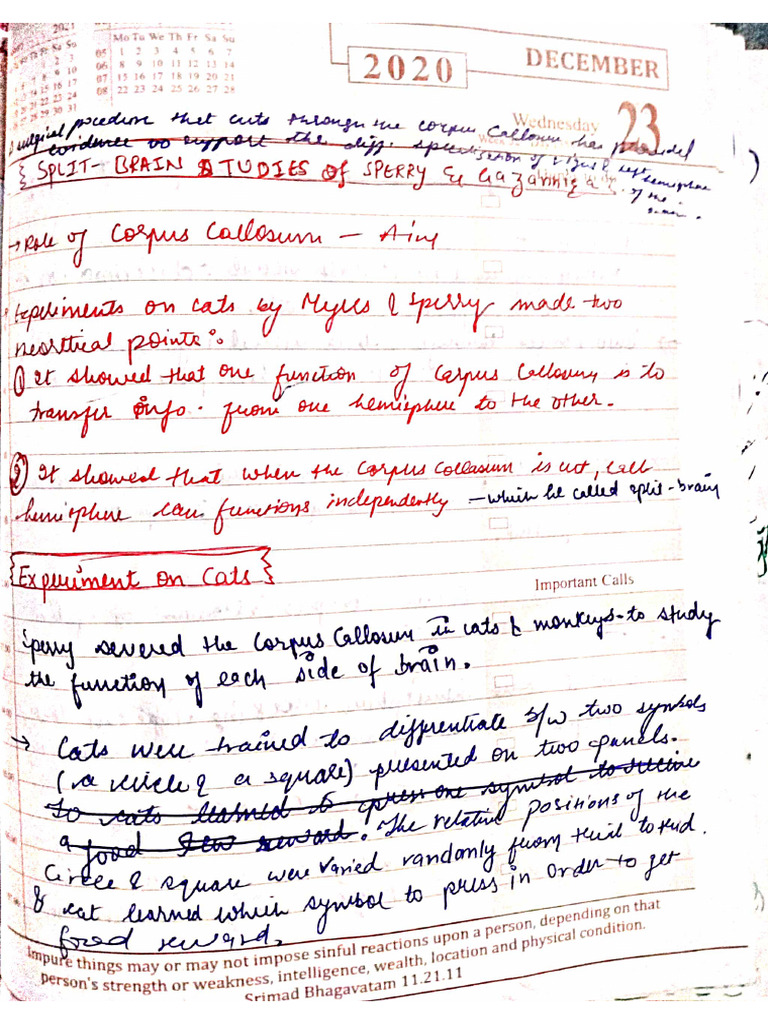 2021
Mo Tu We Th Fr Sa Su
05 1 2 3 4 5 6 7
06 8 9 10 11 12 13 14
07 15 16 17 18 19 20 21
08 22 23 24 25 26 27 28
2020
DECEMBER
Wednesday
23
surgical procedure that cuts through the corpus callosum has provided
evidence to support the diff. specialisation of right & left hemisphere
of the
{ SPLIT-BRAIN STUDIES of SPERRY & Gazzaniga
→ Role of Corpus Callosum – Aim
Experiments on cats by Myres & Sperry made two
points:
① It showed that one function of Corpus Callosum is to
transfer info. from one hemisphere to the other.
② It showed that when the corpus collasum is cut, each
hemisphere can functions independently – which he called split-brain
{Experiment on Cats}
Important Calls
Sperry severed the Corpus Callosum in cats & monkeys to study
the function of each side of brain.
→ Cats were trained to diffrentiate b/w two symbols
(a circle & a square) presented on two panels.
To cats learned to press one symbol to
a food reward. The relative positions of the
circle & square were varied randomly from trial to trial.
& cat learned which symbol to press in order to get
food reward.
Impure things may or may not impose sinful reactions upon a person, depending on that
person's strength or weakness, intelligence, wealth, location and physical condition.
Srimad Bhagavatam 11.21.11